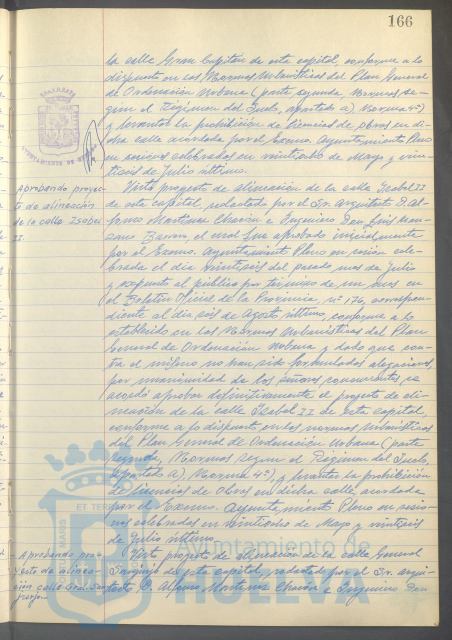 166
la calle Gran Capitán de esta capital, conforme a lo
dispuesto en las Normas Urbanísticas del Plan General
de Ordenación Urbana (parte segunda, Normas se-
gún el Régimen del Suelo, apartado a), Norma 4ª)
y levantar la prohibición de licencias de obras en di-
cha calle acordada por el Excmo. Ayuntamiento Pleno
en sesiones celebradas en veintiocho de Mayo y vein-
tiseis de Julio último.
Aprobando proyec-
to de alineación
de la calle Isabel
II.
Visto proyecto de alineación de la calle Isabel II
de esta capital, redactado por el Sr. Arquitecto D. Al-
fonso Martínez Chacón e Ingeniero Don Luis
el cual fue aprobado inicialmente
por el Excmo. Ayuntamiento Pleno en sesión cele-
brada el día veintiseis del pasado mes de Julio
y expuesto al público por término de un mes en
el Boletín Oficial de la Provincia nº 176, correspon-
diente al día seis de Agosto último, conforme a lo
establecido en las Normas Urbanísticas del Plan
General de Ordenación Urbana y dado que con-
tra el mismo no han sido formuladas alegaciones,
por unanimidad de los señores concurrentes, se
acordó aprobar definitivamente el proyecto de ali-
neación de la calle Isabel II de esta capital,
conforme a lo dispuesto en las normas Urbanísticas
del Plan General de Ordenación Urbana (parte
segunda, Normas según el Régimen del Suelo,
apartado a), Norma 4ª), y levantar la prohibición
de licencias de obras en dicha calle, acordada
por el Excmo. Ayuntamiento Pleno en sesio-
nes celebradas en veintiocho de Mayo y veintiseis
de Julio último.
Aprobando pro-
yecto de alinea-
ción calle Gral. San-
jurjo.
Visto proyecto de alineación de la calle General
Sanjurjo de esta capital, redactado por el Sr. Arqui-
tecto D. Alfonso Martínez Chacón e Ingeniero Don
Ayuntamiento de
HUELVA